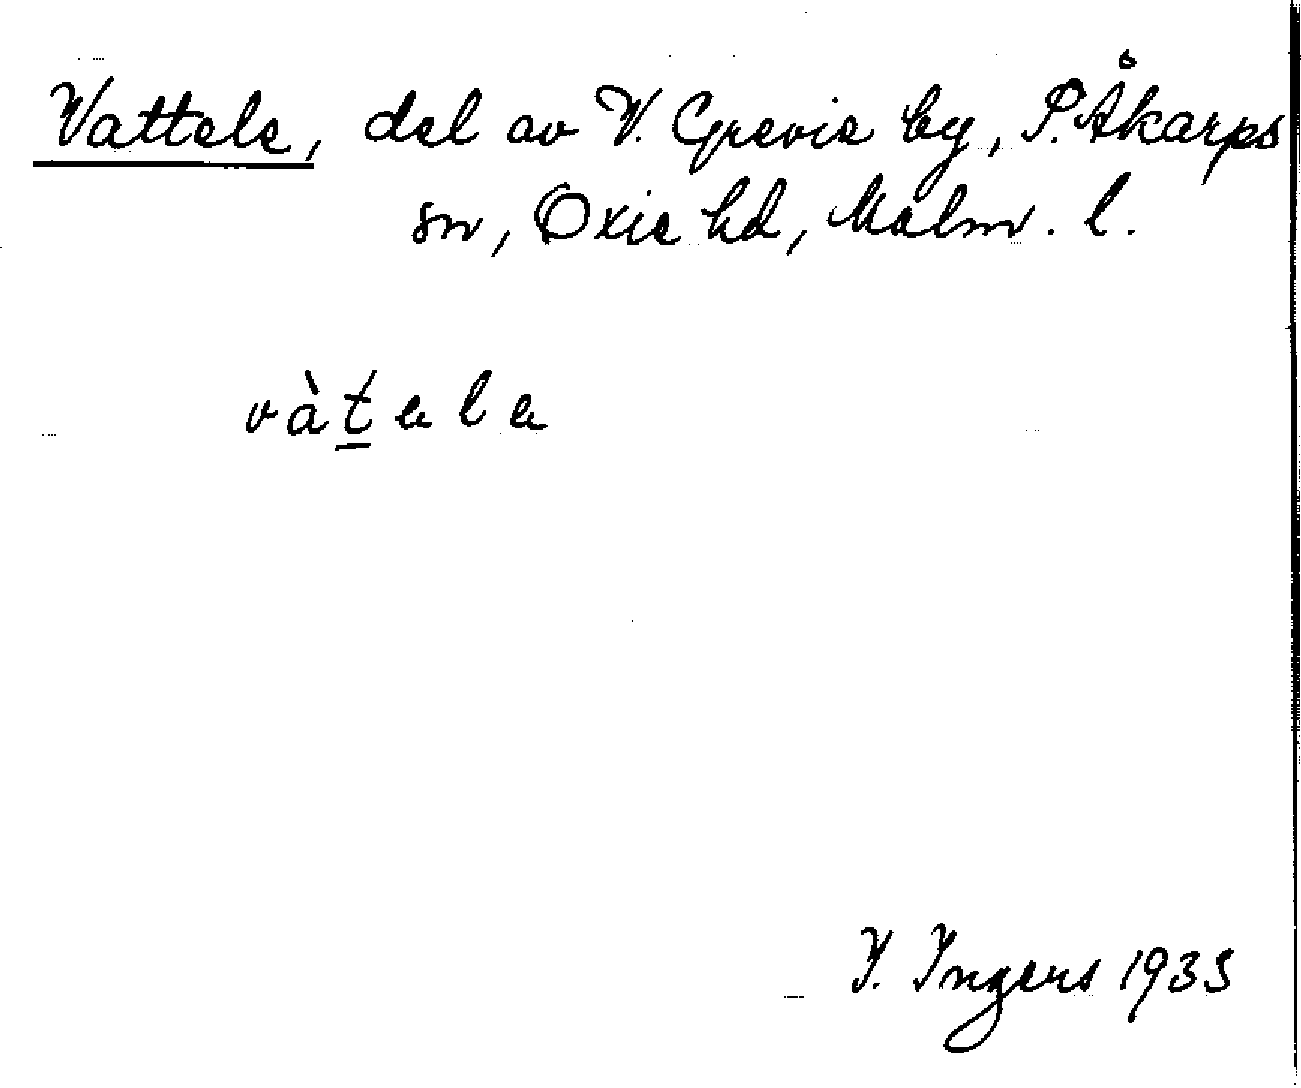 Vattele, del av V. Grevie by, P. Åkarps
sn, Oxie hd, Malm. l.
vàtele
I. Ingers 1933